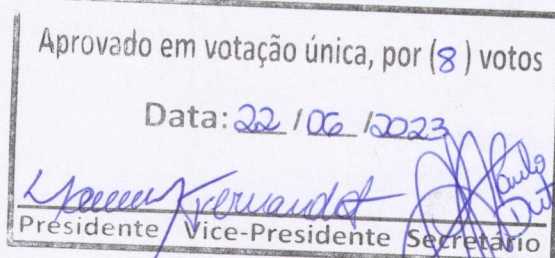 Aprovado em votação única, por (8) votos
Data: 22 / 06 / 2023
Paulo
Presidente Vice-Presidente Secretário